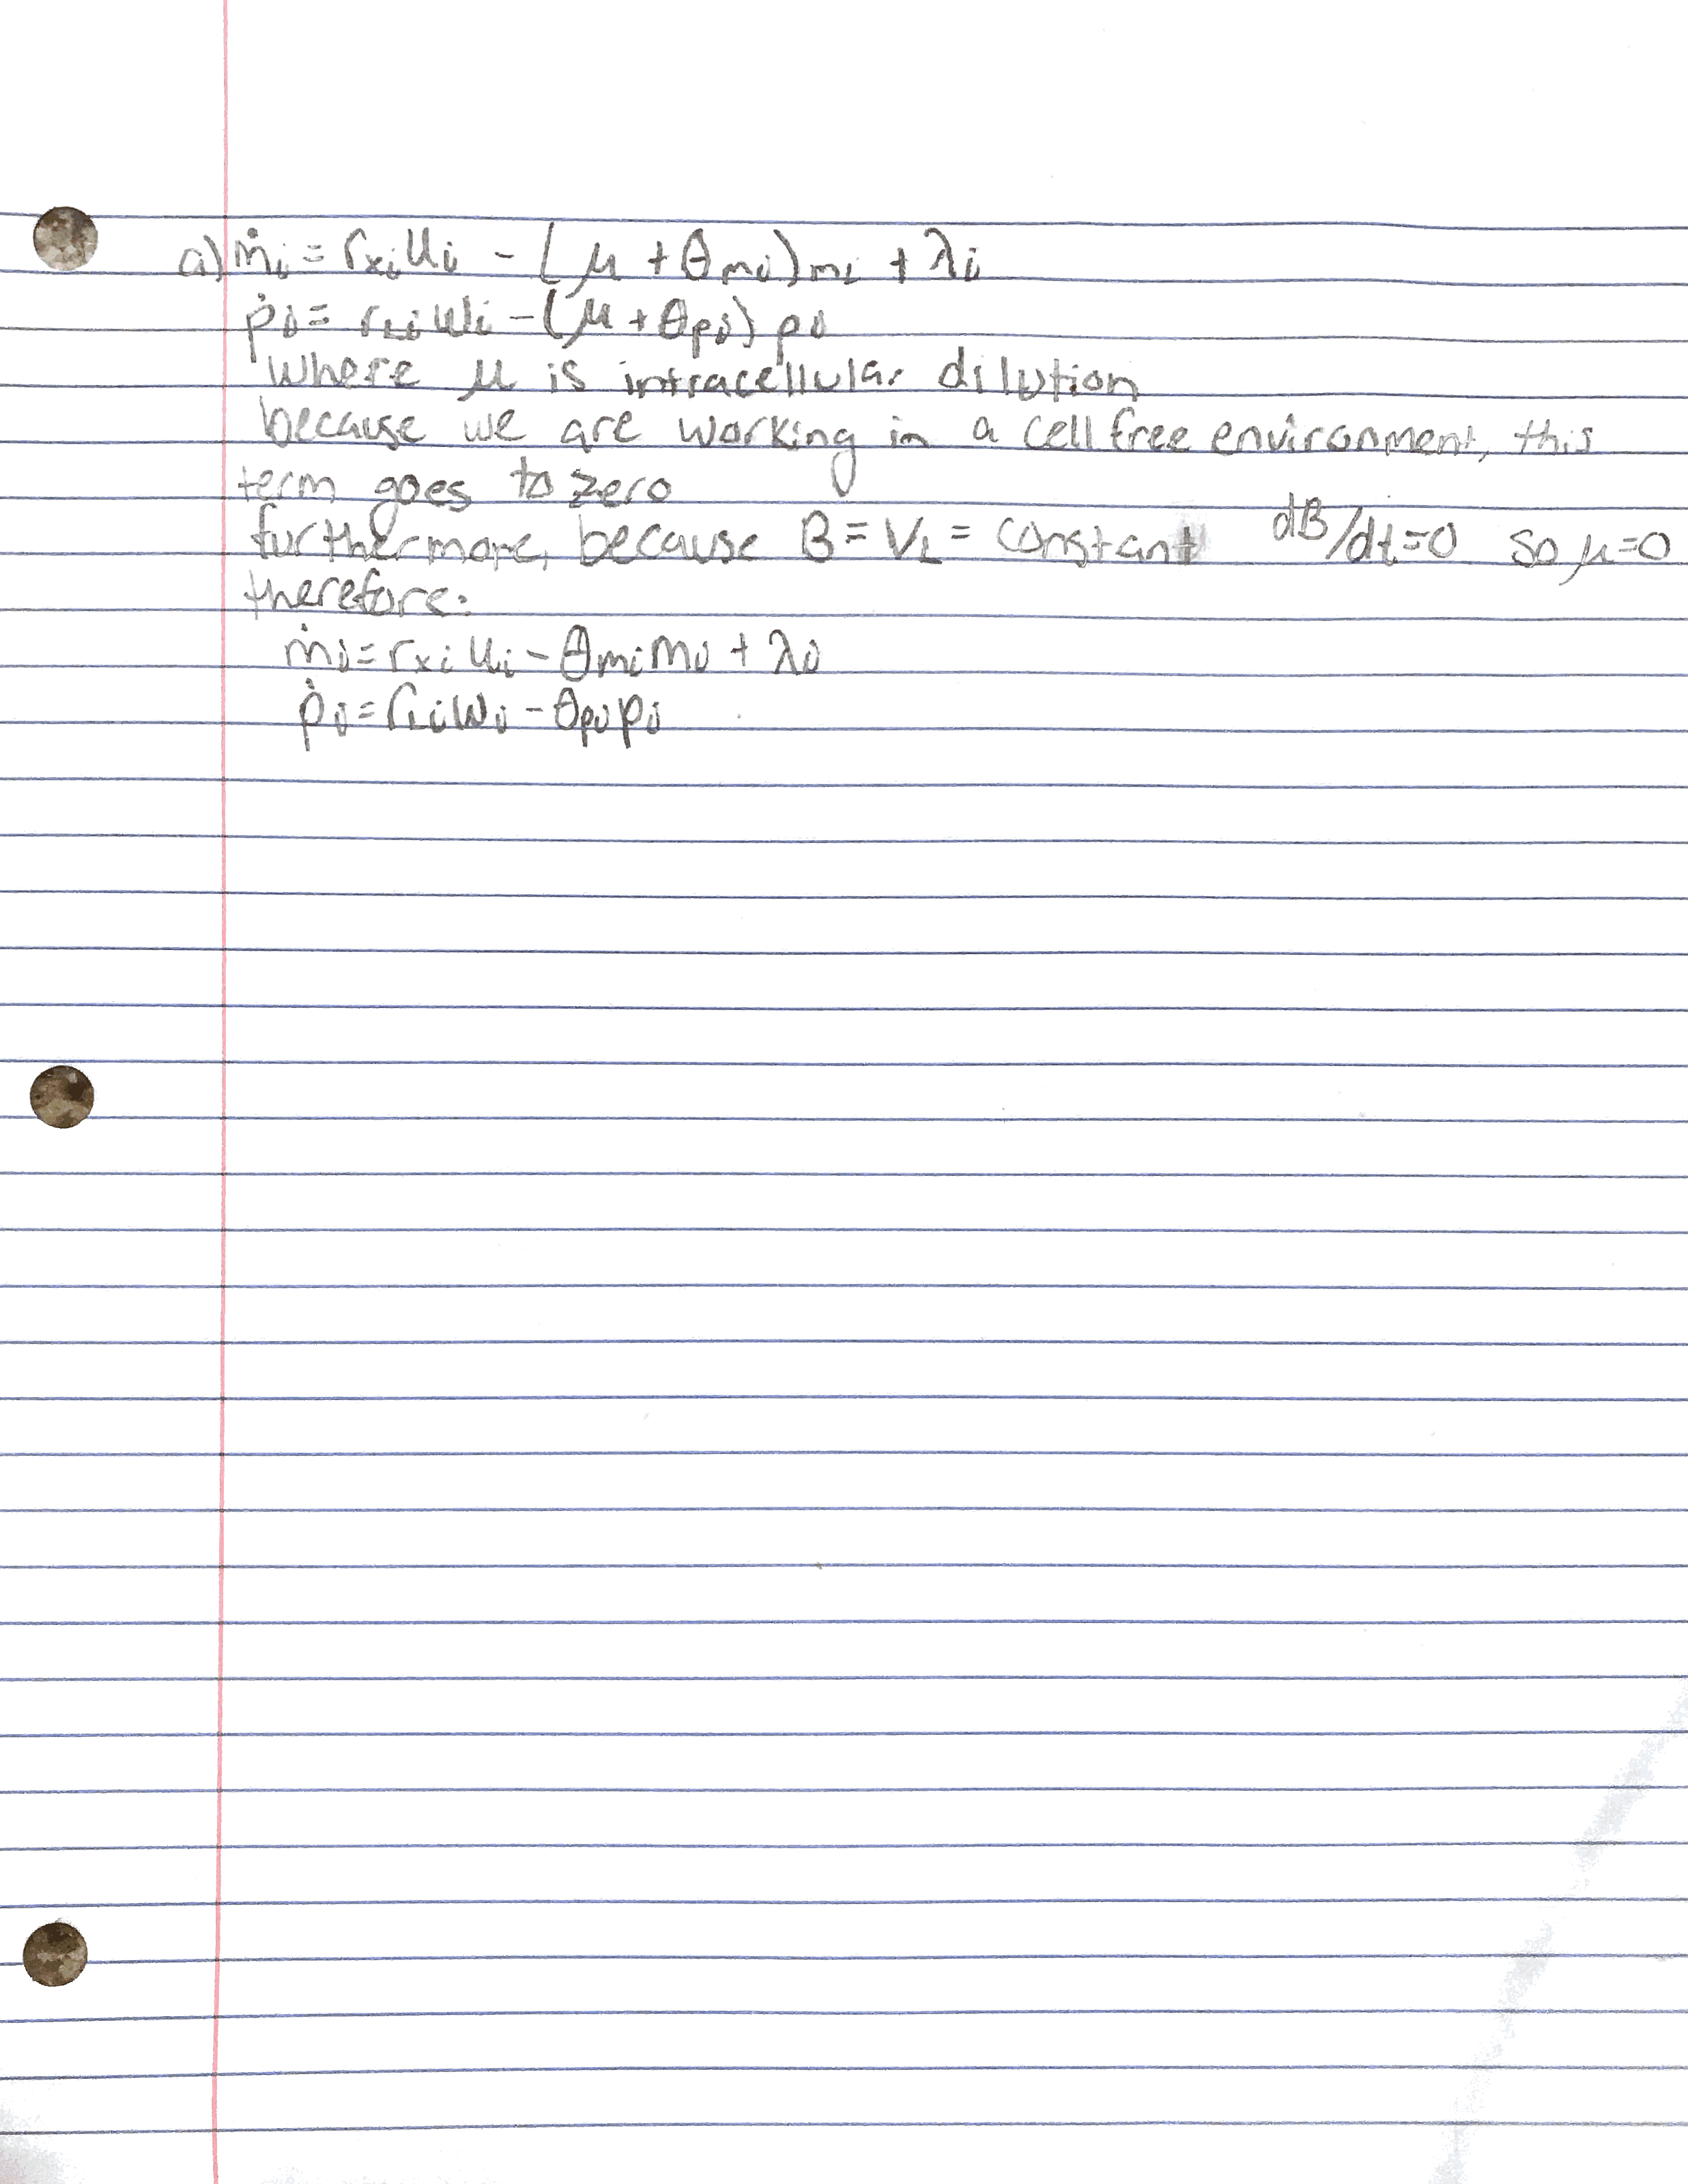 a) ṁᵢ = rₓᵢuᵢ - (μ + θₘᵢ)mᵢ + λᵢ
ṗᵢ = r_Lᵢwᵢ - (μ + θₚᵢ)pᵢ
where μ is intracellular dilution
because we are working in a cell free environment, this
term goes to zero
furthermore, because B = V_L = constant dB/dt=0 so μ=0
therefore:
ṁᵢ = rₓᵢuᵢ - θₘᵢmᵢ + λᵢ
ṗᵢ = r_Lᵢwᵢ - θₚᵢpᵢ